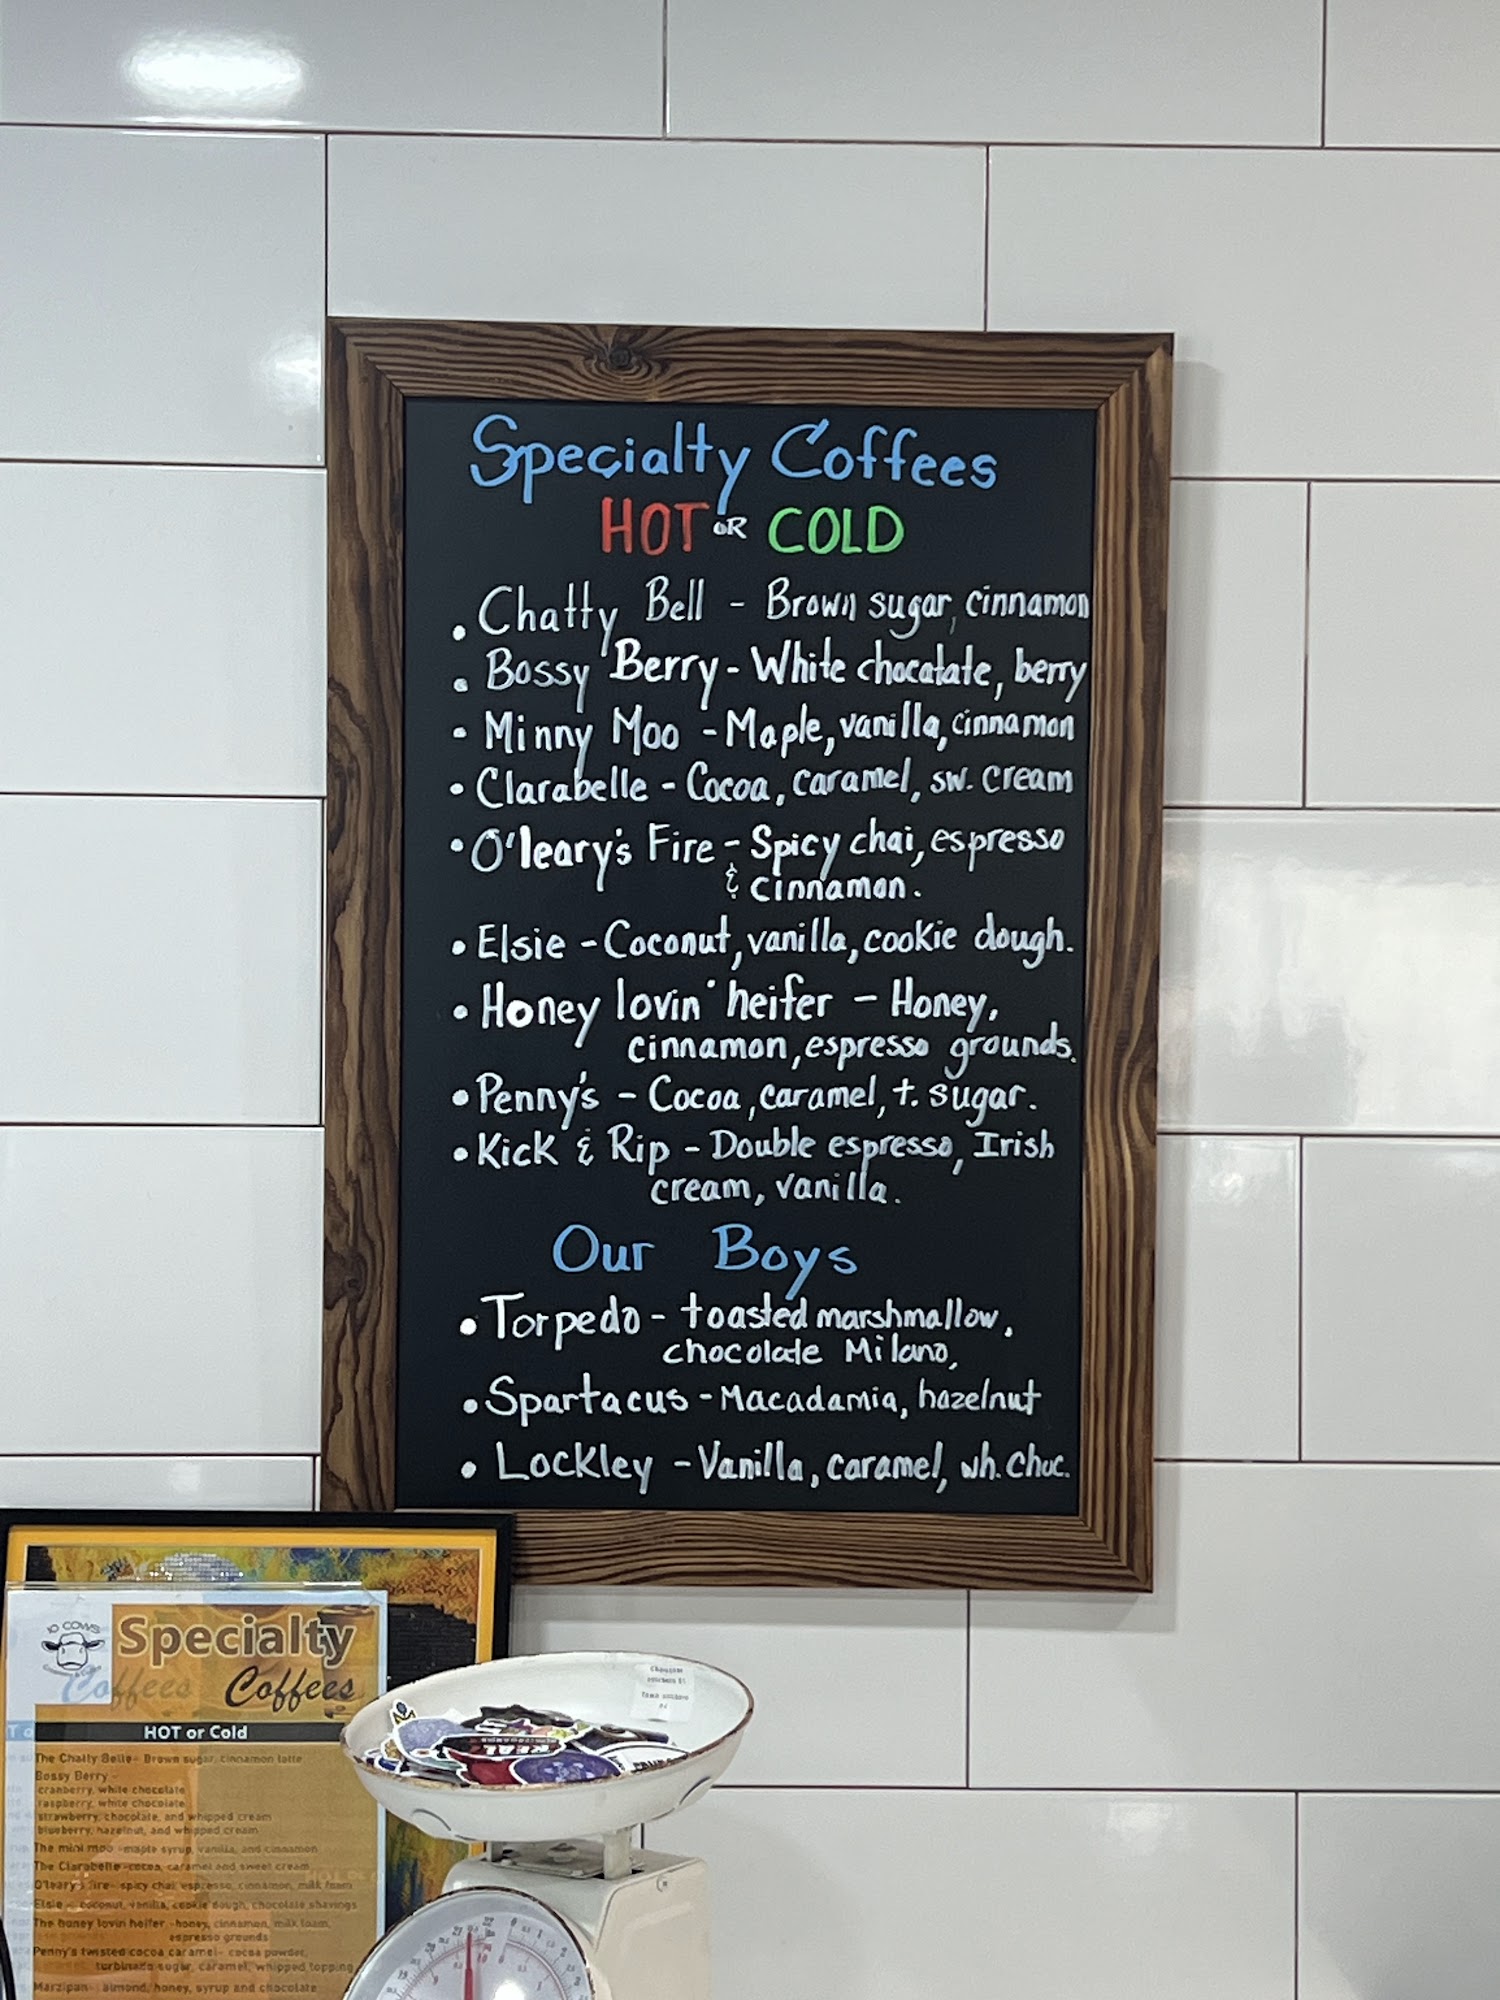 Specialty Coffees
HOT OR COLD
• Chatty Bell - Brown sugar, cinnamon
• Bossy Berry - White chocatate, berry
• Minny Moo - Maple, vanilla, cinnamon
• Clarabelle - Cocoa, caramel, sw. cream
• O'leary's Fire - Spicy chai, espresso
& cinnamon.
• Elsie - Coconut, vanilla, cookie dough.
• Honey lovin' heifer - Honey,
cinnamon, espresso grounds.
• Penny's - Cocoa, caramel, t. sugar.
• Kick & Rip - Double espresso, Irish
cream, vanilla.
Our Boys
• Torpedo - toasted marshmallow,
chocolate Milano,
• Spartacus - Macadamia, hazelnut
• Lockley - Vanilla, caramel, wh. choc.
10 COWS
Specialty
Coffees
HOT or Cold
The Chatty Belle- Brown sugar, cinnamon latte
Bossy Berry -
cranberry, white chocolate
raspberry, white chocolate
strawberry, chocolate, and whipped cream
blueberry, hazelnut, and whipped cream
The mini moo -maple syrup, vanilla, and cinnamon
The Clarabelle -cocoa, caramel and sweet cream
O'leary's fire- spicy chai, espresso, cinnamon, milk foam
Elsie - coconut, vanilla, cookie dough, chocolate shavings
The honey lovin heifer -honey, cinnamon, milk foam,
espresso grounds
Penny's twisted cocoa caramel- cocoa powder,
turbinado sugar, caramel, whipped topping
Marzipan- almond, honey, syrup and chocolate
REAL